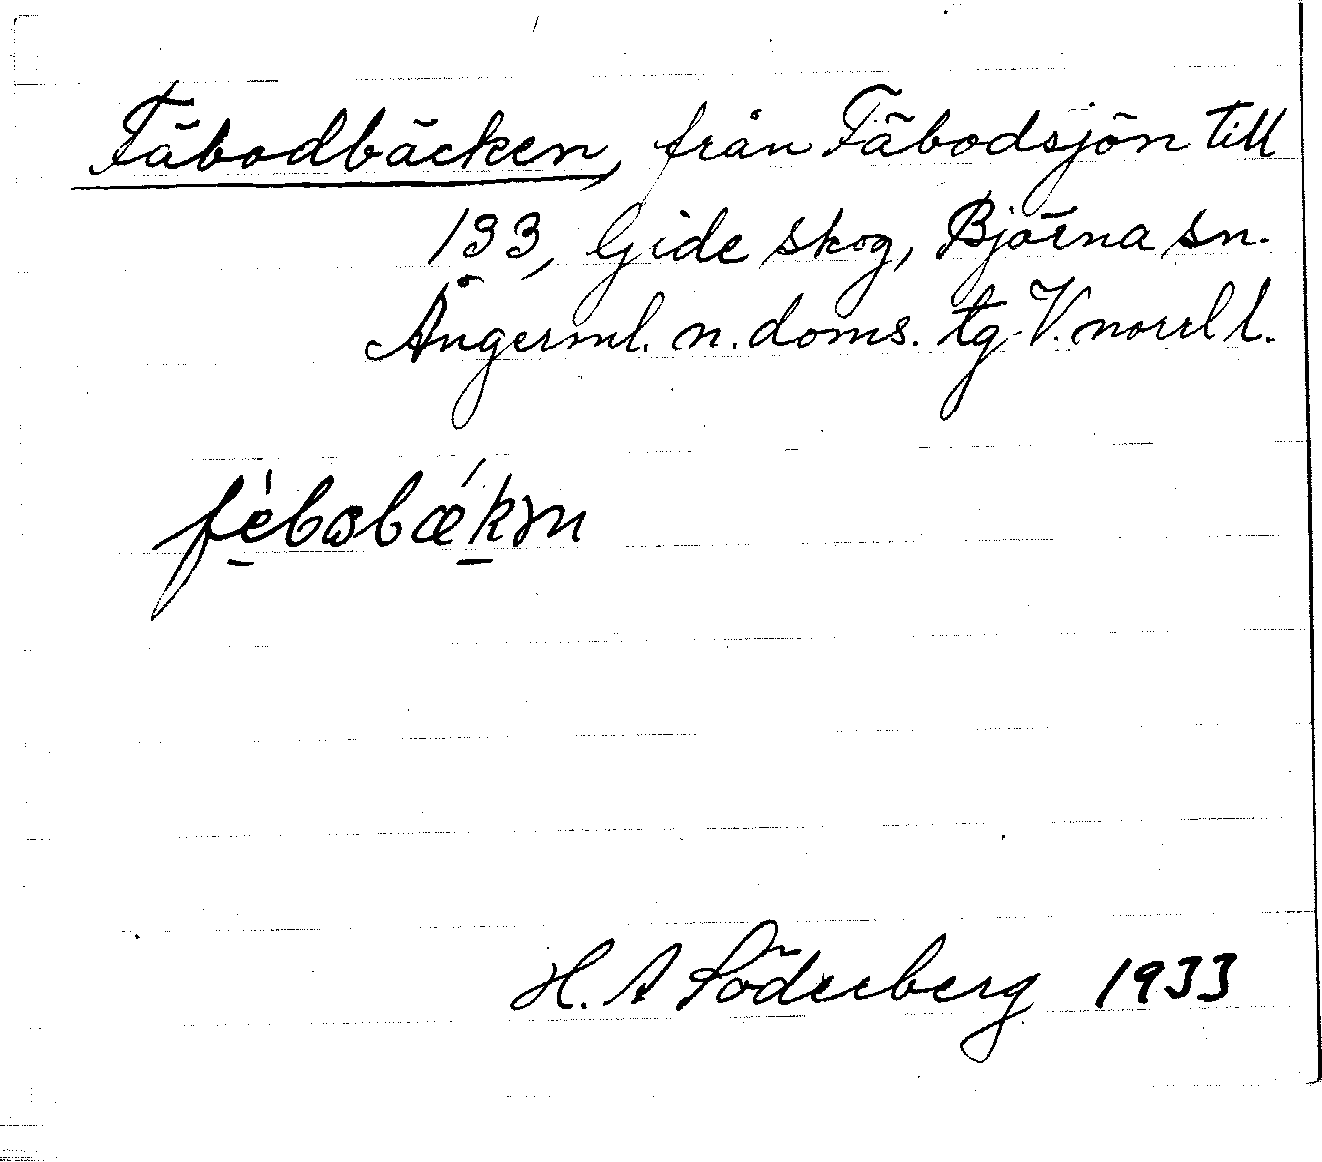 Fäbodbäcken, från Fäbodsjön till
133, Gide skog, Björna sn.
Ångerml. n. doms. tg. V. norrl l.
H. A Söderberg 1933